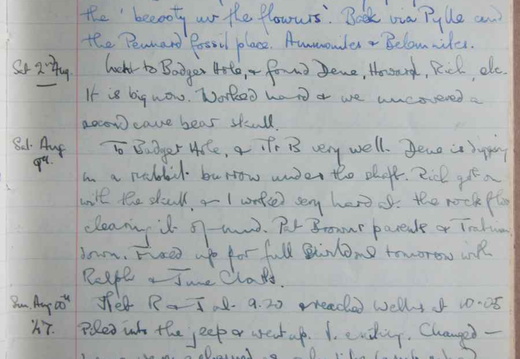 the 'beeooty uv the flowurs'. Back via Pylle and
the Pennard fossil place. Ammonites & Belemnites.
Sat 2nd Aug. Went to Badger Hole, & found Dene, Howard, Rich, etc.
It is big now. Worked hard & we uncovered a
second cave bear skull.
Sat. Aug 9th. To Badger Hole, & Mr B very well. Dene is digging
in a rabbit burrow under the shaft. Rich got on
with the skull, & I worked very hard at the rock floor
clearing it of mud. Pat Browne's parents &
down. Fixed up for full tomorrow with
Ralph & June
Sun. Aug 10th '47. Met R & J at 9.20 & reached Wells at 10.05
Piled into the jeep & went up. V. exciting. Changed –